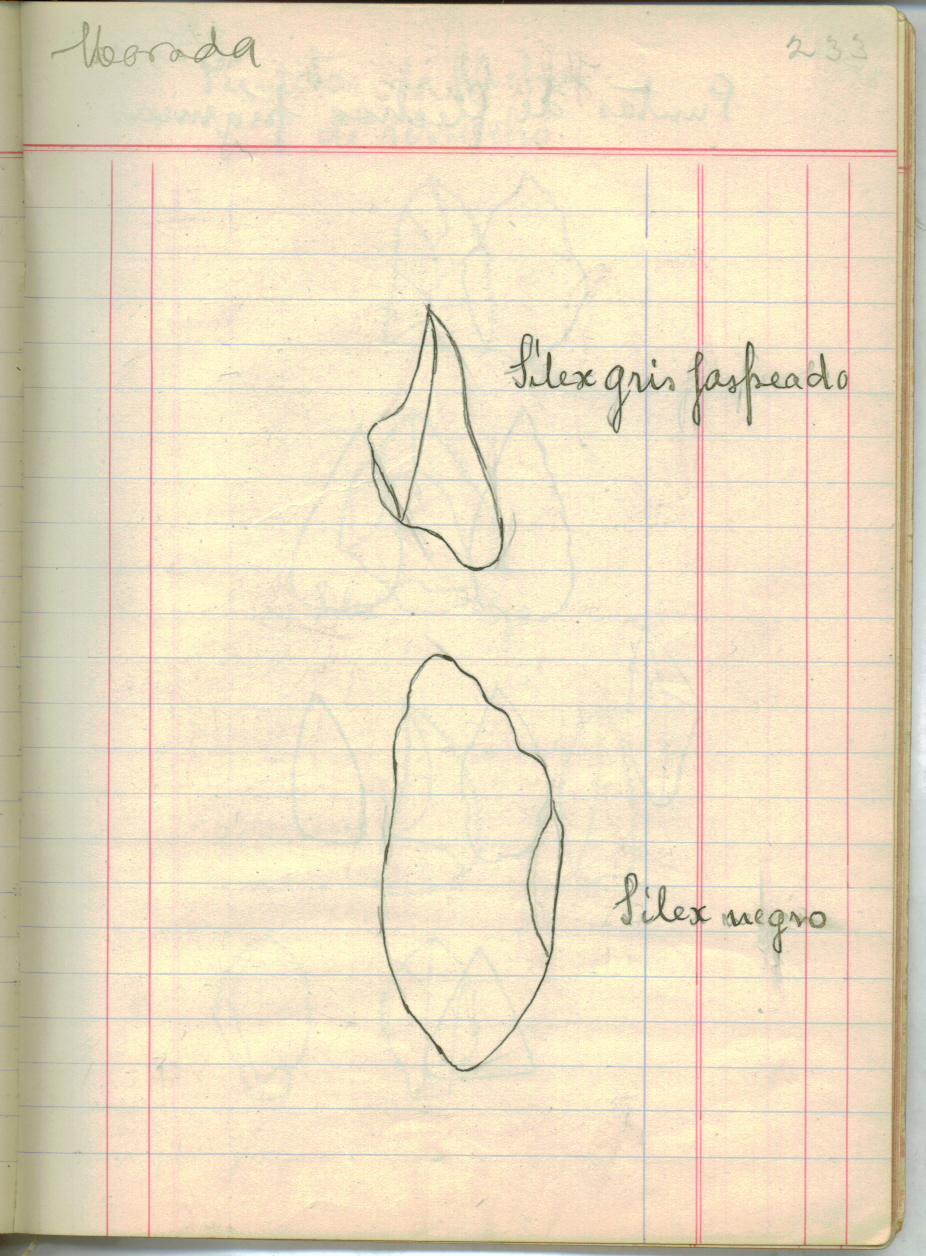 Morada
233
Sílex gris jaspeado
Silex negro